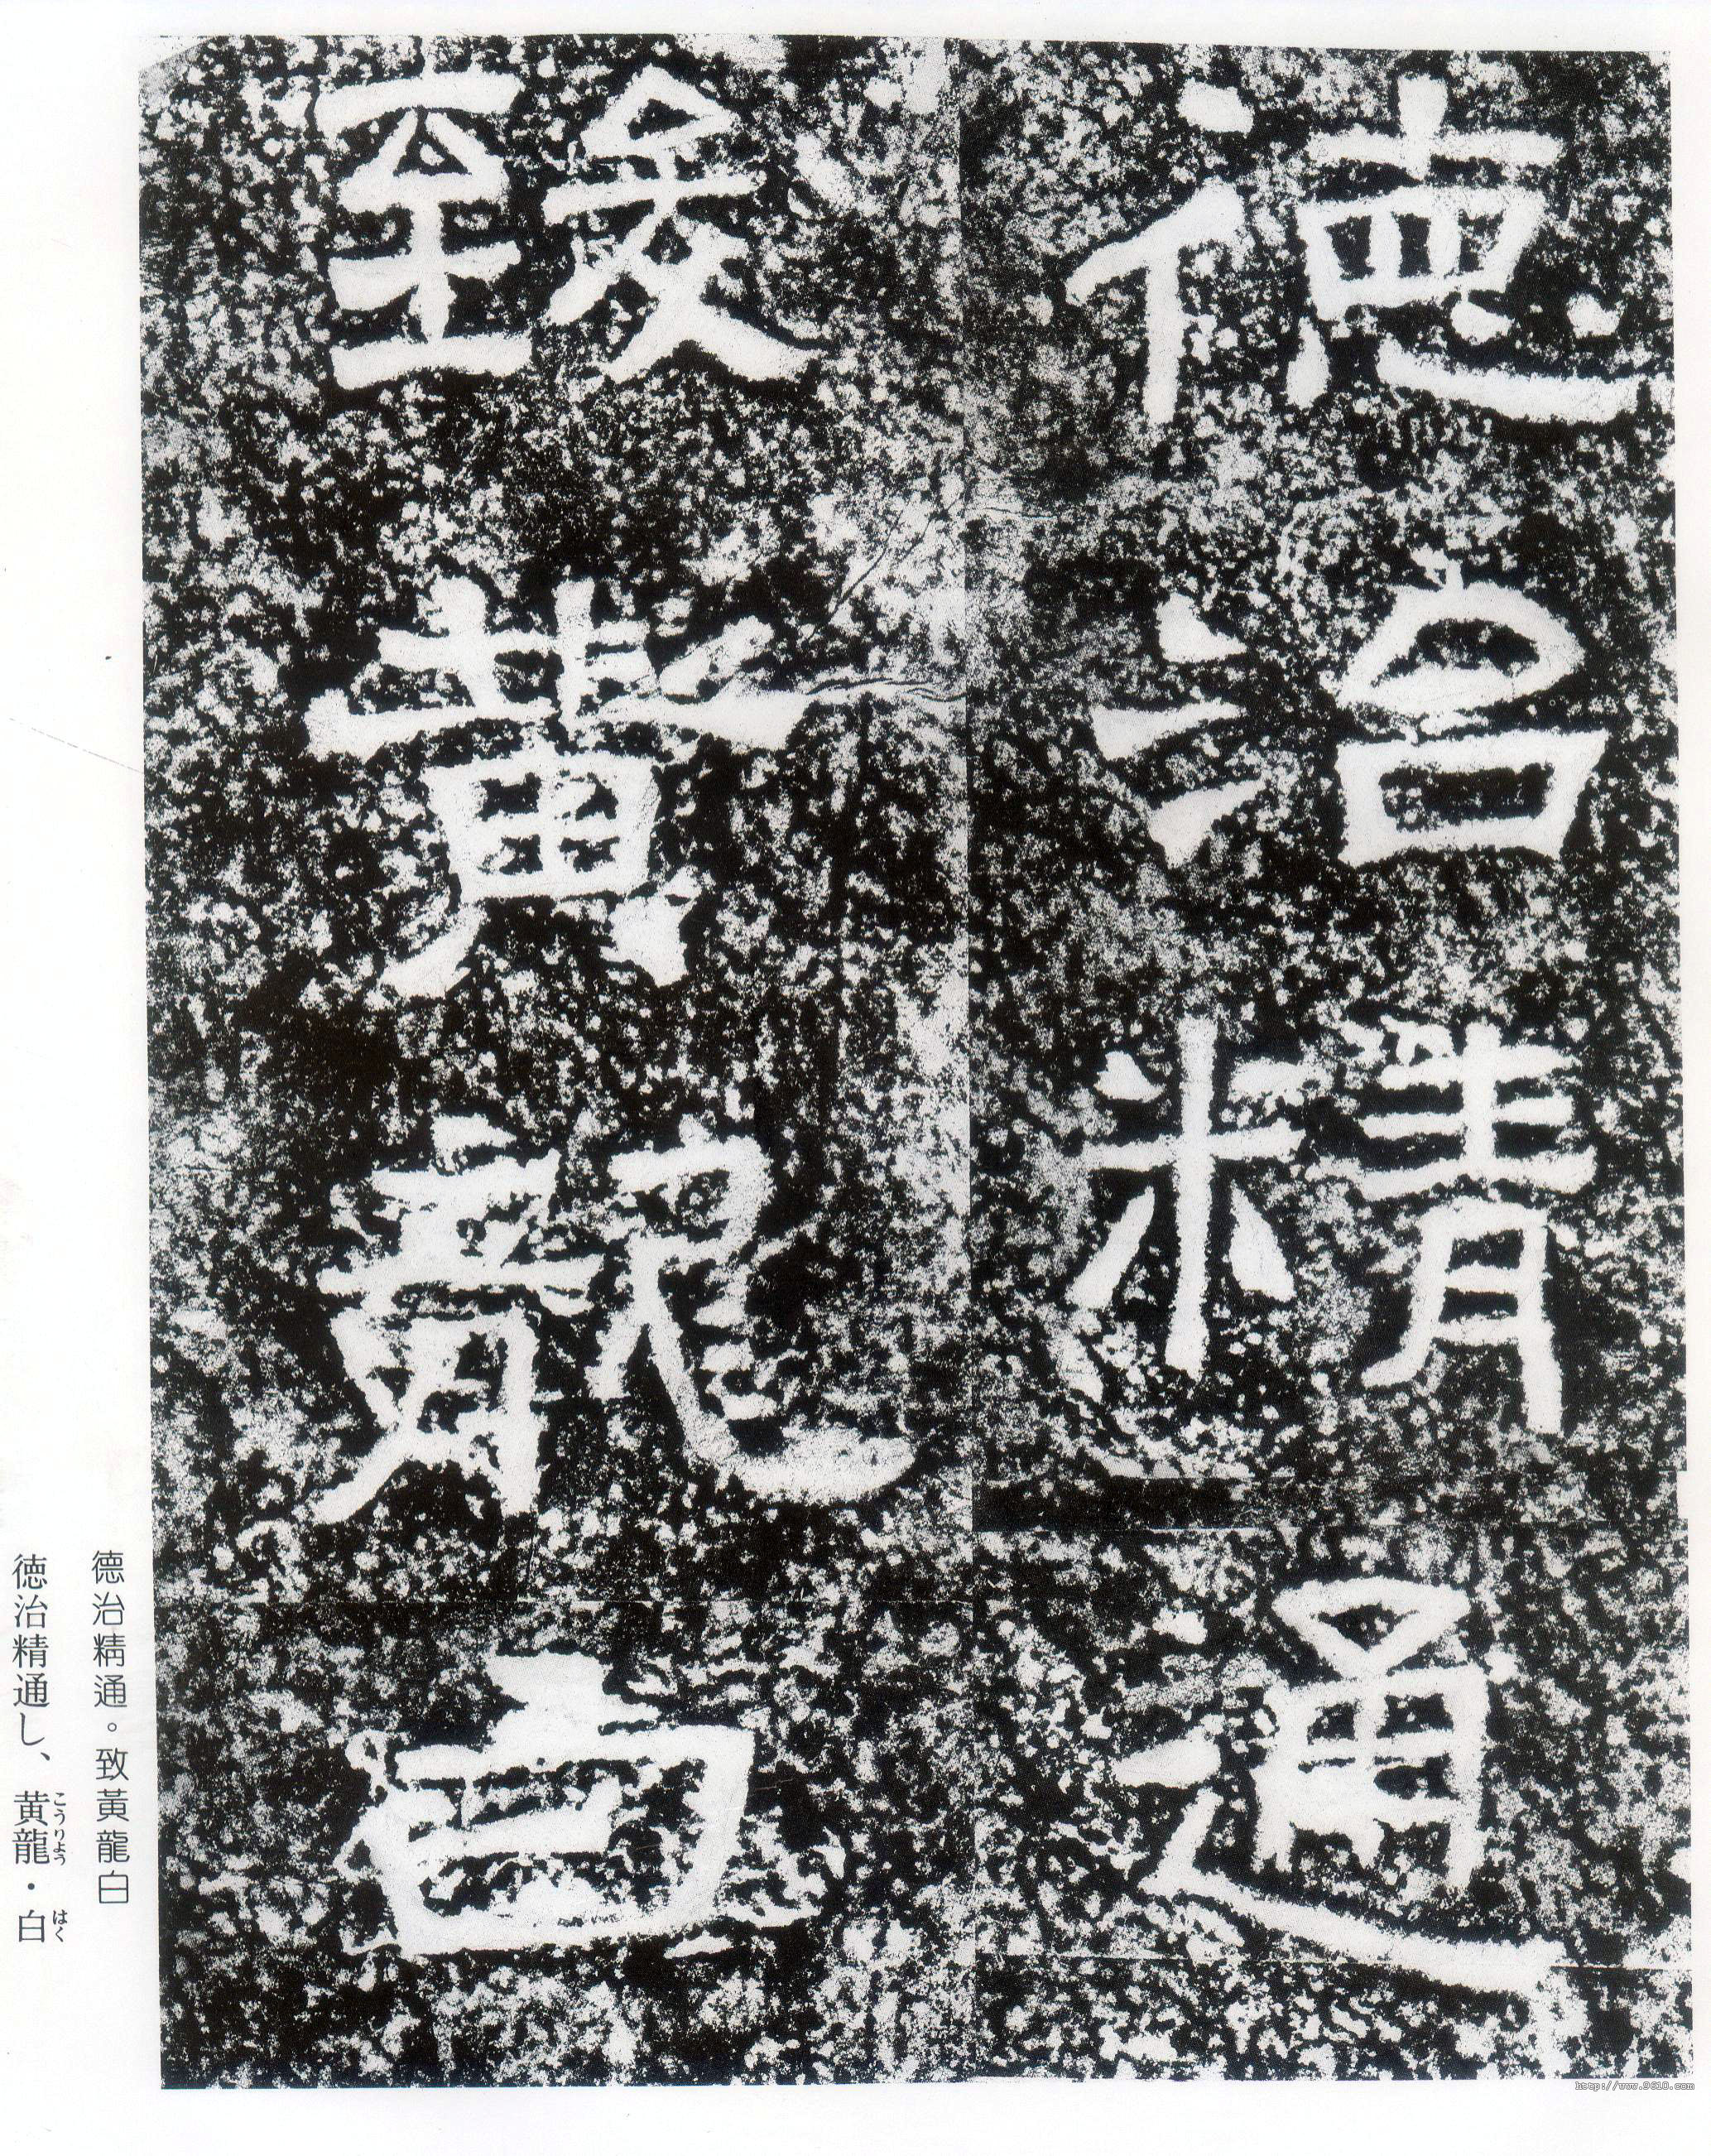 德治精通
致黃龍白
德治精通。致黃龍白
徳治精通し、黄龍・白
こうりよう はく
http://www.9610.com